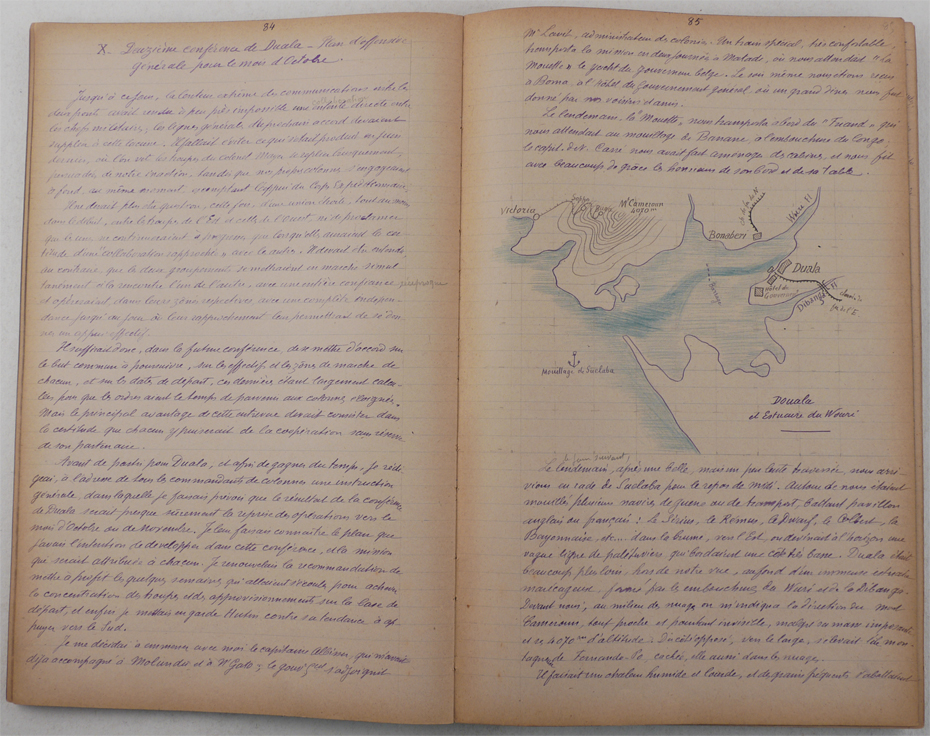 84
X. Deuxième conférence de Duala – Plan d'offensive
générale pour le mois d'Octobre.
Jusqu'à ce jour, la lenteur extrême des communications entre les
deux fronts avait rendu à peu près impossible une entente directe entre
les chefs militaires; les lignes générales du prochain accord devraient
suppléer à cette lacune. Il fallait éviter ce qui s'était produit en Juin
dernier, où l'on vit les troupes du colonel Mayer se replier
à fond, au même moment, escomptant l'appui du Corps Expéditionnaire.
Il ne devait plus être question, cette fois, d'une union étroite, tout au moins
dans le début, entre les troupes de l'Est et celles de l'Ouest, ni de prétendre
que les uns ne continueraient à progresser que lorsqu'elles auraient la cer-
titude d'une "collaboration rapprochée" avec les autres. Il devait être entendu
au contraire, que les deux groupements se mettraient en marche simul-
tanément à la rencontre l'un de l'autre, avec une entière confiance réciproque
et opéreraient, dans leurs zônes respectives, avec une complète indépen-
dance jusqu'au jour où leur rapprochement leur permettrait de se don-
ner un appui effectif.
Il suffirait donc, dans la future conférence, de se mettre d'accord sur
le but commun à poursuivre, sur les effectifs et les zônes de marche de
chacun, et sur les dates de départ, ces dernières étant largement calcu-
lées pour que les ordres aient le temps de parvenir aux colonnes éloignées.
Mais le principal avantage de cette entrevue devait consister dans
la certitude que chacun y puiserait de la coopération sans réserve
de son partenaire.
Avant de partir pour Duala, et afin de gagner du temps, je rédi-
geai, à l'adresse de tous les commandants de colonnes une instruction
générale, dans laquelle je faisais prévoir que le résultat de la conférence
de Duala serait presque sûrement la reprise des opérations vers le
mois d'Octobre ou de Novembre. Je leur faisais connaître le plan que
j'avais l'intention de développer dans cette conférence, et la mission
qui serait attribuée à chacun. Je renouvelais la recommandation de
mettre à profit les quelques semaines qui allaient s'écouler pour achever
la concentration des troupes et des approvisionnements sur les bases de
départ, et enfin je mettais en garde Hutin contre sa tendance à ap-
puyer vers le Sud.
Je me décidai à emmener avec moi le capitaine Albien, qui m'avait
déjà accompagné à Molundu et à N'Gato; le gouv<sup>r</sup> g<sup>al</sup> s'adjoignit
85
M<sup>r</sup> Lavit, administrateur des colonies. Un train spécial, très confortable,
transporta la mission en deux journées à Matadi, où nous attendait "la
Mouette" le yacht du gouverneur belge. Le soir même nous étions reçus
à Boma, à l'hôtel du Gouvernement général, où un grand dîner nous fut
donné par nos voisins et amis.
Le lendemain, la "Mouette" nous transporta à bord du "Friand" qui
nous attendait au mouillage de Banane, à l'embouchure du Congo;
le capit. de V. Carré nous avait fait aménager des cabines, et nous fit
avec beaucoup de grâce les honneurs de son bord et de sa table.
Victoria
M<sup>t</sup> Cameroun
4070<sup>m</sup>
Bonaberi
Ch. de fer du N
Wouri fl
Duala
Hôtel du Gouvern<sup>t</sup>
Dibanga fl
Mouillage de Suelaba
Douala
et Estuaire du Wouri
le jour suivant
Le lendemain, après une belle, mais un peu lente traversée, nous arri-
vions en rade de Suelaba pour le repas de midi. Autour de nous étaient
mouillés plusieurs navires, de guerre ou de transport, battant pavillon
anglais ou français: le Sirius, le Rémus, le Dwarf, le Colbert, la
Bayonnaise, etc... dans la brume, vers l'Est, on devinait à l'horizon une
vague ligne de palétuviers qui bordaient une côte très basse. Duala était
beaucoup plus loin, hors de notre vue, au fond d'un immense estuaire
marécageux, formé par les embouchures du Wouri et de la Dibanga.
Devant nous, au milieu des nuages on m'indiqua la direction du mont
Cameroun, tout proche et pourtant invisible, malgré sa masse imposante
et ses 4070<sup>m</sup> d'altitude. Du côté opposé, vers le large, s'élevait l'île mon-
tagneuse de Fernando-Po, cachée, elle aussi dans les nuages.
Il faisait une chaleur humide et lourde, et des grains fréquents s'abattaient